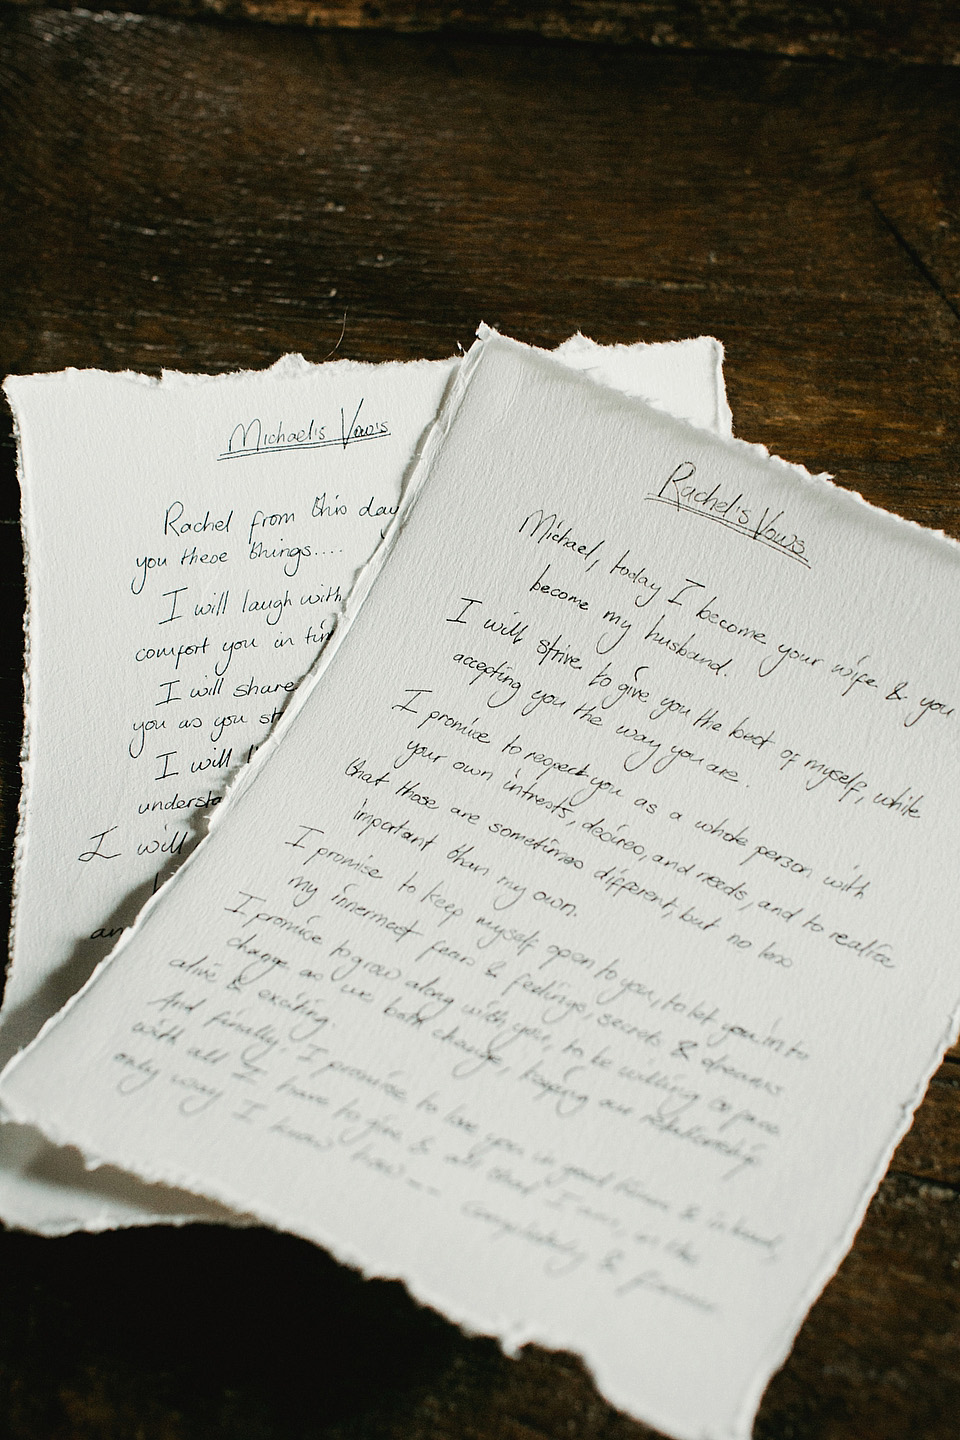 Michael's Vows
Rachel from this day
you these things....
I will laugh with
comfort you in
I will share
you as you
I will
I will
Rachel's Vows
Michael, today I become your wife & you
become my husband.
I will strive to give you the best of myself, while
accepting you the way you are.
I promise to respect you as a whole person with
your own intrests, desires, and needs, and to realise
that those are sometimes different, but no less
important than my own.
I promise to keep myself open to you, to let you in to
my innermost fears & feelings, secrets & dreams
I promise to grow along with you, to be willing to
change as we both change, keeping our relationship
alive & exciting.
And finally, I promise to love you in good times & in bad,
with all I have to give & all that I am, in the
only way I know how -- completely & forever